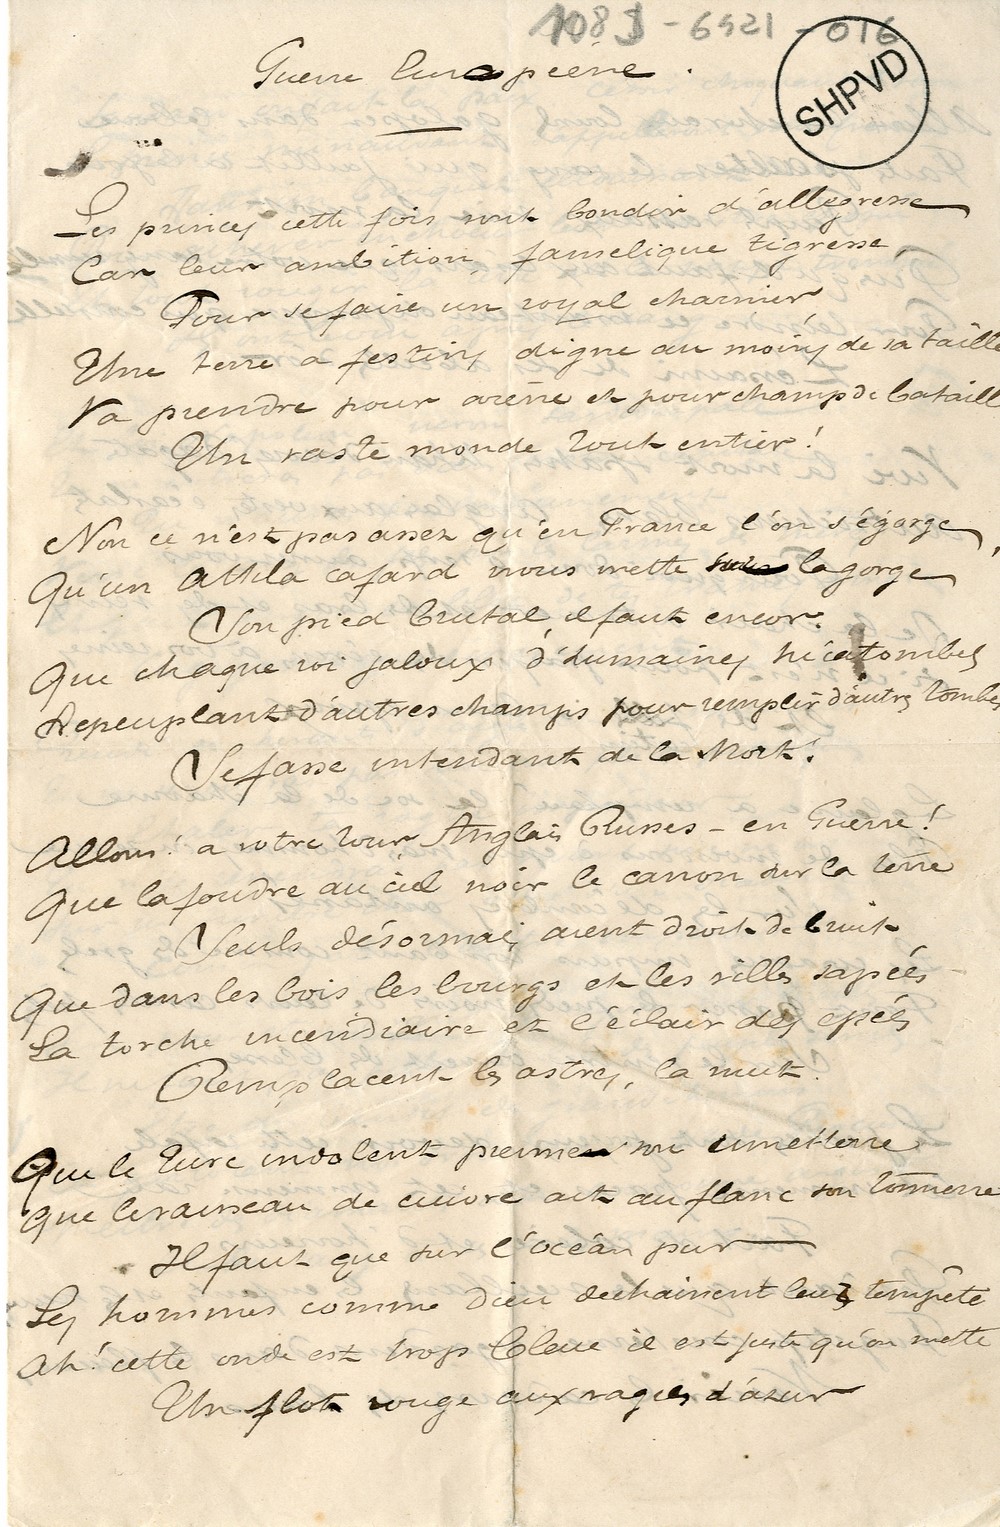 1083-6921-016
SHPVD
Guerre Européène.
Les princes cette fois vont bondir d'allegresse
Car leur ambition, famselique tigresse,
Pour se faire un royal charnier
Une terre a festins digne au moins de sa taille
Va prendre pour arène et pour champ de bataill
Un vaste monde tout entier !
Non ce n'est pas assez qu'en France l'on s'égorge,
Qu'un Attila cafard nous mette sous la gorge
Son pied brutal, il faut encor.
Que chaque roi jaloux d'humaines hécatombes
Depeuplant d'autres champs pour remplir d'autres tombes
Se fasse intendant de la Mort !
Allons ! a votre tour Anglais Russes - en Guerre !
Que la foudre au ciel noir le canon sur la terre
Seuls désormais aient droit de bruit
Que dans les bois les bourgs et les villes sapées
La torche incendiaire et l'éclair des epées
Remplacent les astres, la nuit !
Que le Turc indolent prenne son cimetterre
Que le vaisseau de cuivre ait au flanc son tonnerre
Il faut que sur l'océan pur
Les hommes comme Dieu dechainent leur tempête
Ah ! cette onde est trop bleue il est juste qu'on mette
Un flot rouge aux vagues d'azur